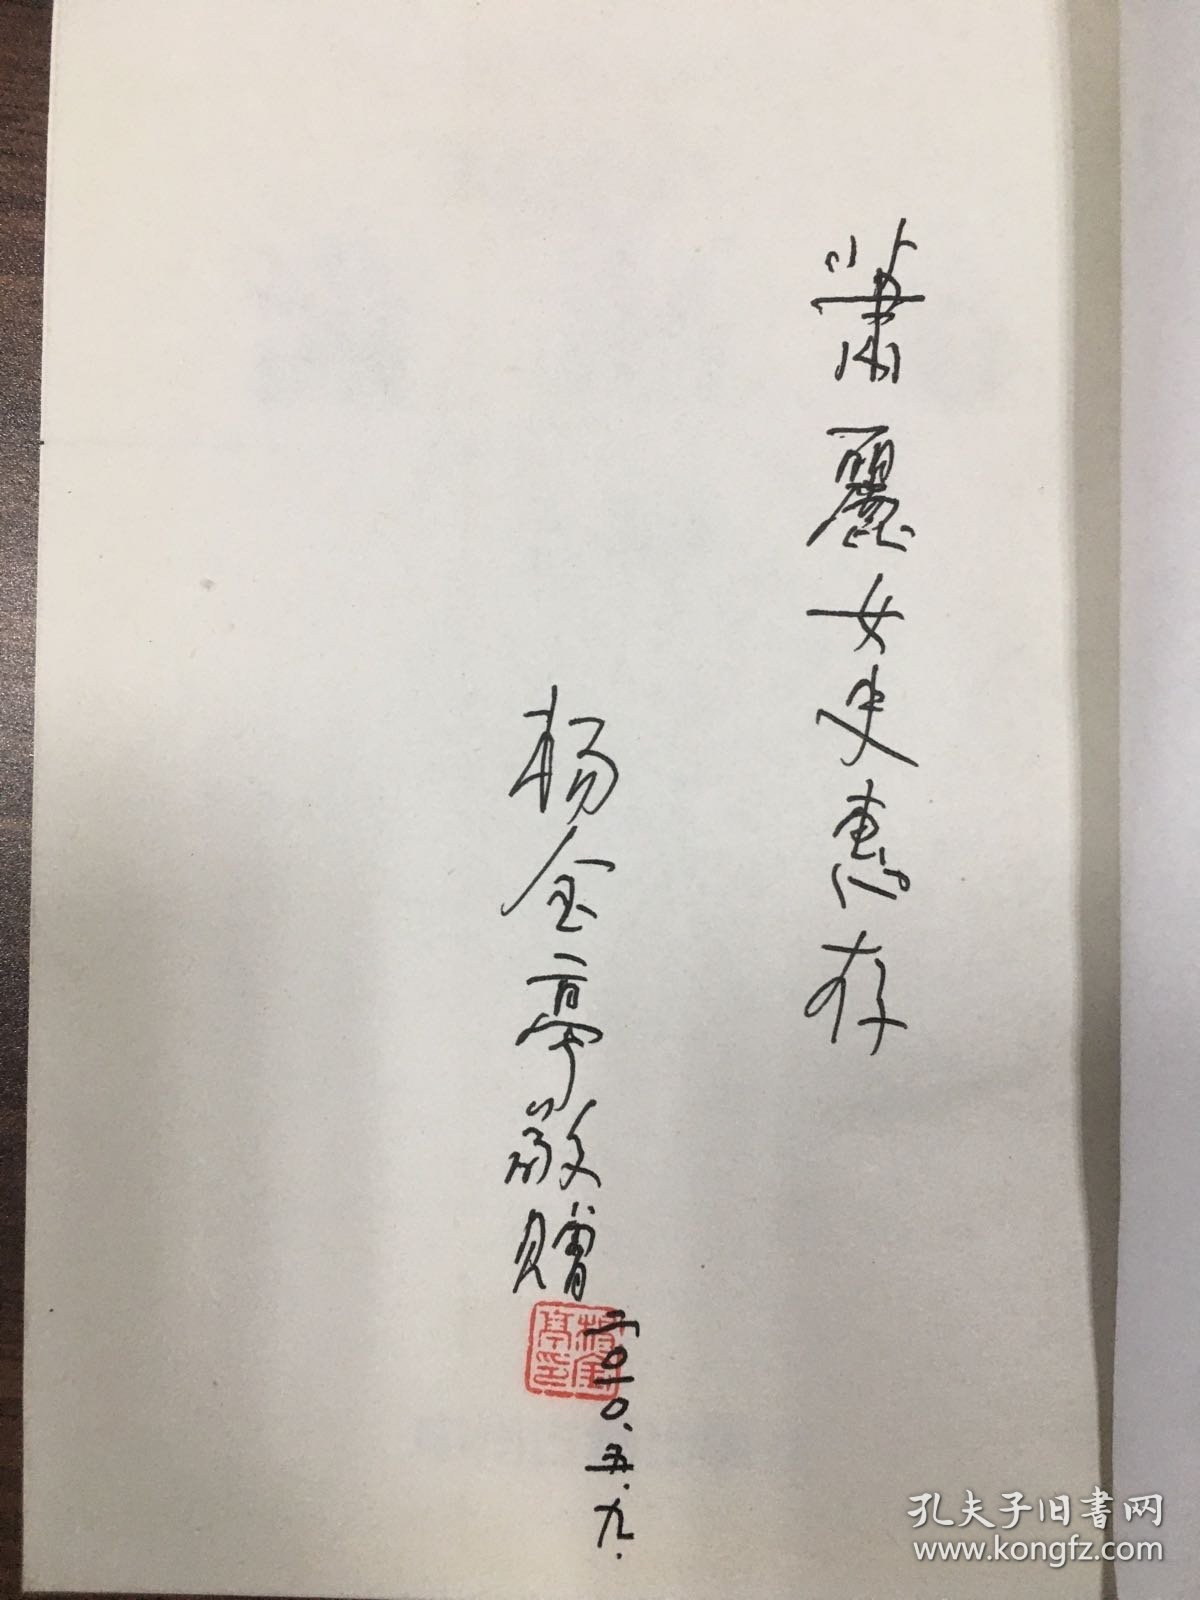 萧麗女史惠存
杨金亭敬贈
二〇一〇.五.九.
杨金亭印
孔夫子旧书网
www.kongfz.com